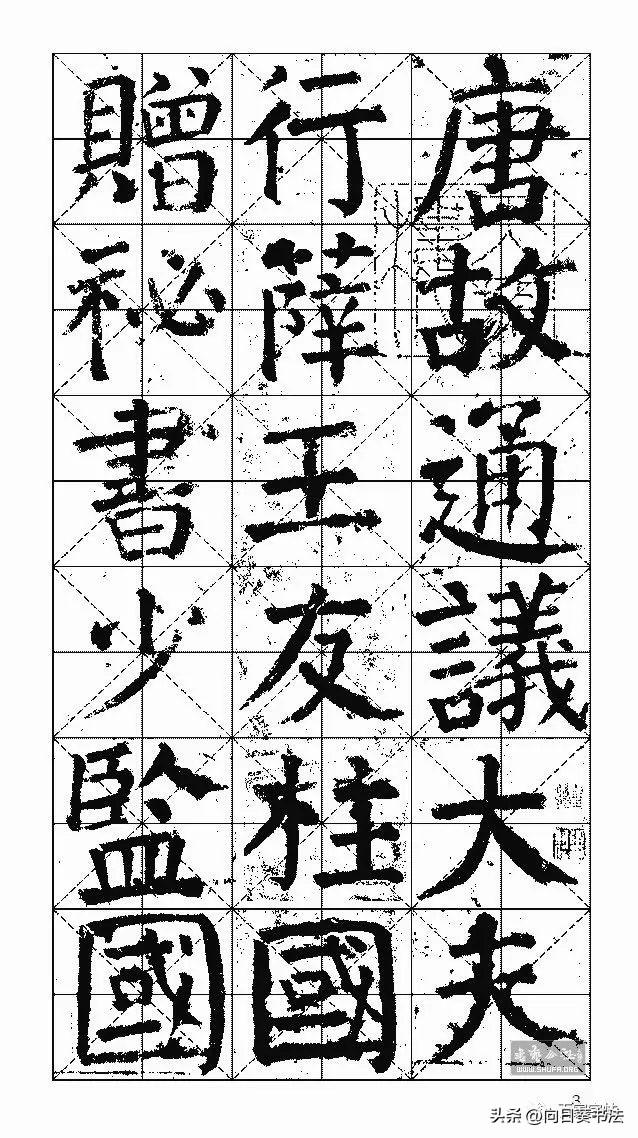 唐故通議大夫
行薛王友柱國
贈祕書少監國
WWW.SHUFA.ORG
3
头条 @向日葵书法